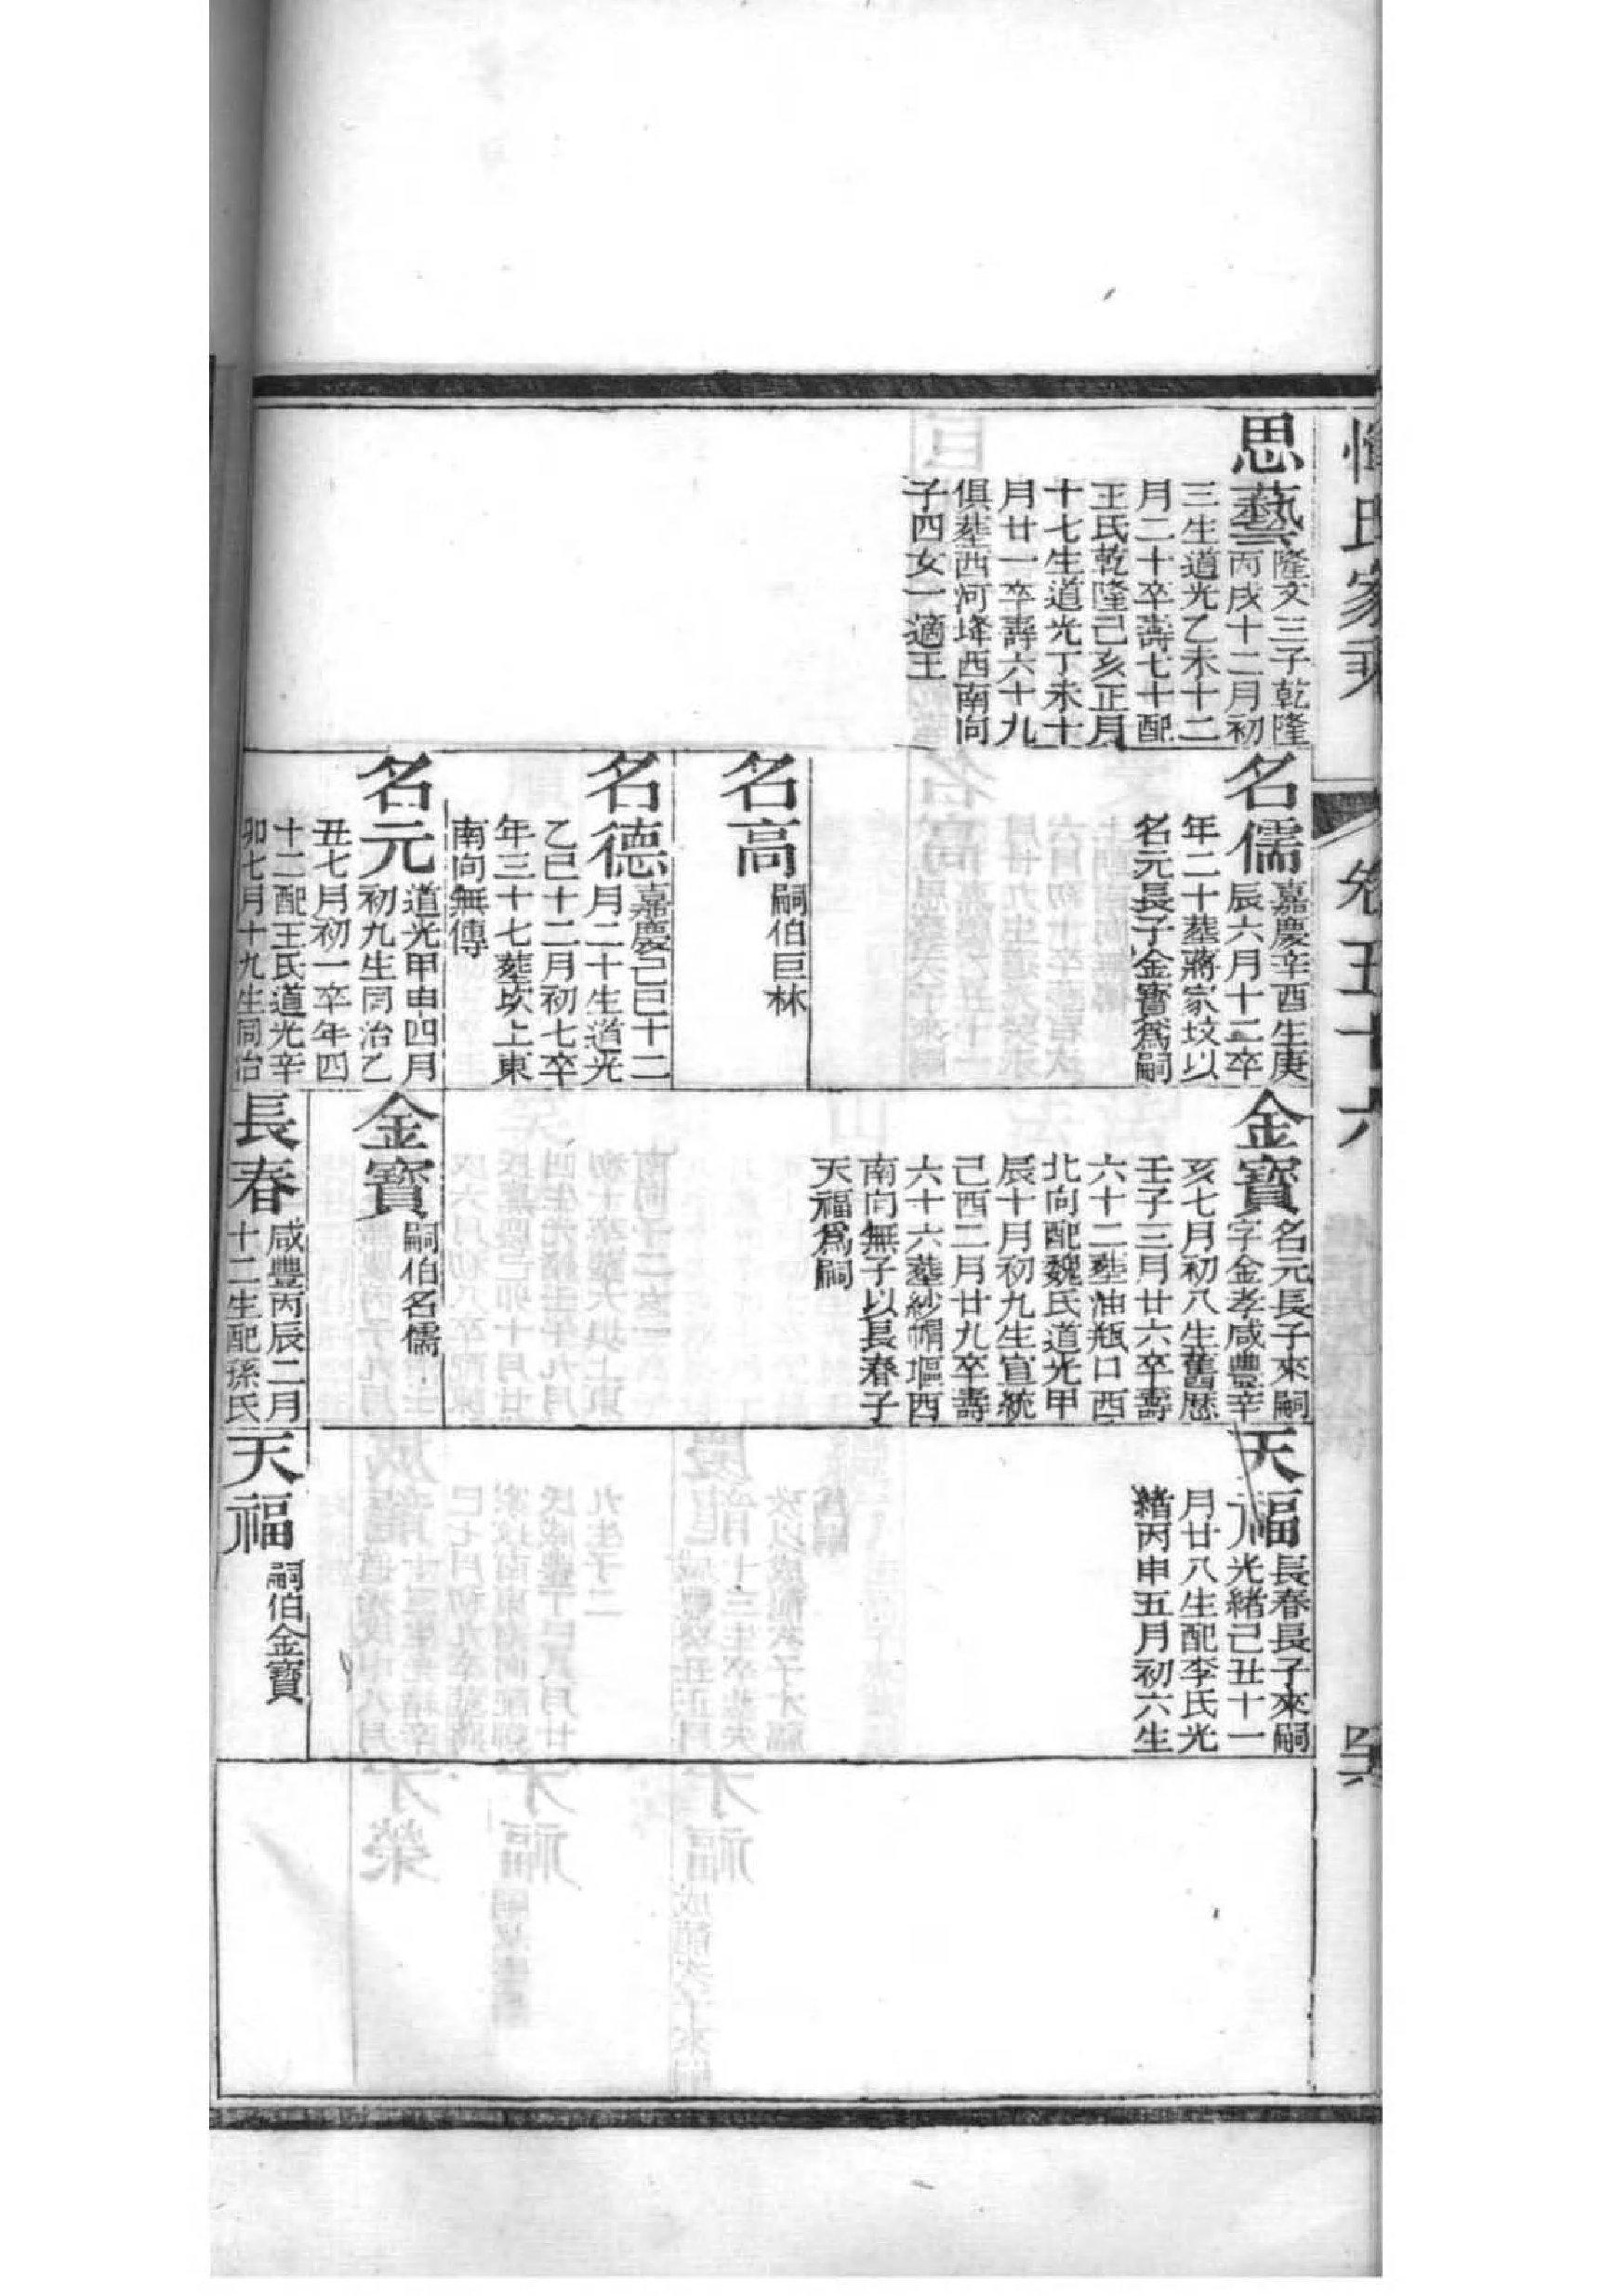 惲氏家乘
卷五十六
思藝
隆文三子乾隆
丙戌十二月初
三生道光乙未十二
月二十卒壽七十配
王氏乾隆己亥正月
十七生道光丁未十
月廿一卒壽六十九
俱塟西河垾西南向
子四女一適王
名儒
嘉慶辛酉生庚
辰六月十二卒
年二十塟蔣家坟以
名元長子金寳爲嗣
名高
嗣伯巨林
名德
嘉慶己巳十二
月二十生道光
乙巳十二月初七卒
年三十七塟坎上東
南向無傳
名元
道光甲申四月
初九生同治乙
丑七月初一卒年四
十二配王氏道光辛
卯七月十九生同治
金寶
名元長子來嗣
字金孝咸豐辛
亥七月初八生舊歴
壬子三月廿六卒壽
六十二塟油瓶口西
北向配魏氏道光甲
辰十月初九生宣統
己酉二月廿九卒壽
六十六塟紗帽塸西
南向無子以長春子
天福爲嗣
金寶
嗣伯名儒
長春
咸豐丙辰二月
十二生配孫氏
天福
長春長子來嗣
光緒己丑十一
月廿八生配李氏光
緒丙申五月初六生
天福
嗣伯金寶